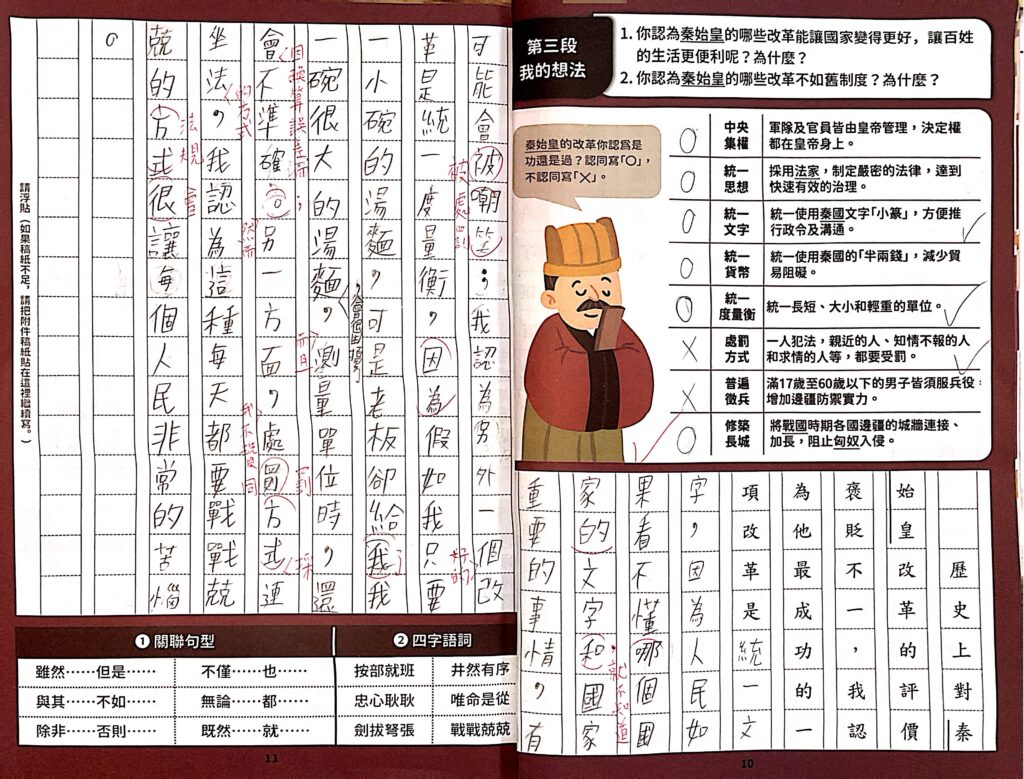 第三段
我的想法
1. 你認為秦始皇的哪些改革能讓國家變得更好,讓百姓
的生活更便利呢?為什麼?
2. 你認為秦始皇的哪些改革不如舊制度?為什麼?
秦始皇的改革你認為是
功還是過?認同寫「○」,
不認同寫「×」。
○ 中央集權 軍隊及官員皆由皇帝管理,決定權
都在皇帝身上。
○ 統一思想 採用法家,制定嚴密的法律,達到
快速有效的治理。
○ 統一文字 統一使用秦國文字「小篆」,方便推
行政令及溝通。
○ 統一貨幣 統一使用秦國的「半兩錢」,減少貿
易阻礙。
○ 統一度量衡 統一長短、大小和輕重的單位。
× 處罰方式 一人犯法,親近的人、知情不報的人
和求情的人等,都要受罰。
× 普遍徵兵 滿17歲至60歲以下的男子皆須服兵役,
增加邊疆防禦實力。
○ 修築長城 將戰國時期各國邊疆的城牆連接、
加長,阻止匈奴入侵。
歷史上對秦
始皇改革的評價
褒貶不一,我認
為他最成功的一
項改革是統一文
字,因為人民如
果看不懂哪個國
家的文字和國家
,就不知道
重要的事情,有
10
可能會被嘲笑;我認為另外一個改
被處罰
好的
革是統一度量衡,因為假如我只要
一小碗的湯麵,可是老板卻給我我
,會很困擾
一碗很大的湯麵,測量單位時,還
而且
因換算誤差而
會不準確。另一方面,處買方式連
然而
我不贊同
罰
採
坐法,我認為這種每天都要戰戰兢
的方式
兢的方式很讓每個人民非常的苦惱
法規
會
。
請浮貼(如果稿紙不足,請把附件稿紙貼在這裡繼續寫。)
❶ 關聯句型
雖然……但是…… 不僅……也……
與其……不如…… 無論……都……
除非……否則…… 既然……就……
❷ 四字語詞
按部就班 井然有序
忠心耿耿 唯命是從
劍拔弩張 戰戰兢兢
11